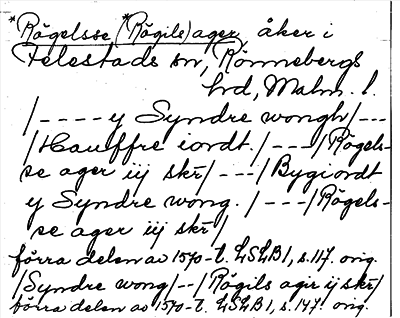 *Rögelsse (*Rögils) ager, åker i
Felestads sn, Rönnebergs
hrd, Malm. l.
/---- y Syndre wongh/---
/Hauffre iordt./---/Rögels-
se ager iij skr/---/Bygiordt
y Syndre wong./---/Rögels-
se ager iij skr/
förra delen av 1570-t. LSLB1, s. 117. orig.
/Syndre wong/--/Rögils agir ij skr/
förra delen av 1570-t. LSLB1, s. 147. orig.